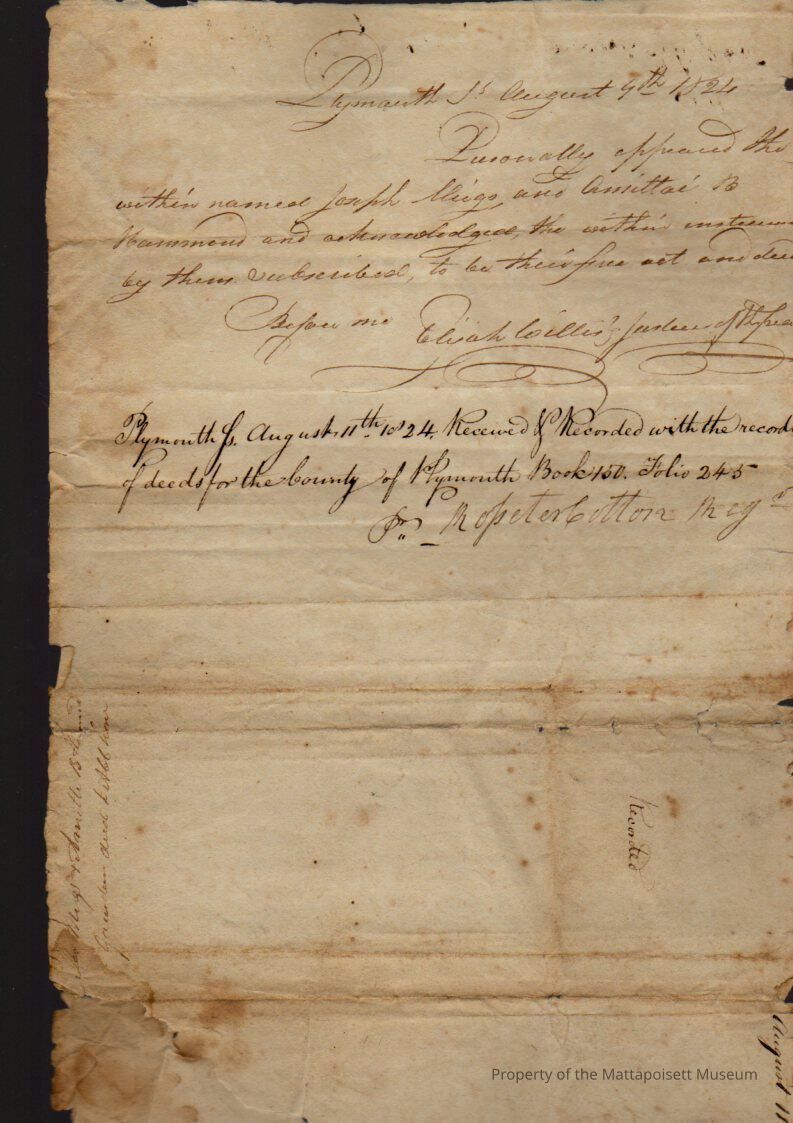 Plymouth Ss August 9th 1824
Personally appeared the
within named Joseph Meigs, and Amittai B
Hammond and acknowledged, the within instrum
by them Subscribed, to be their free act and deed
Before me Elijah Willis, Justice of the pea
Plymouth Ss. August 11th 1824. Received & Recorded with the record
of deeds for the County of Plymouth Book 150. Folio 245
Pr Rosseter Cotton Regr
Recorded
Meigs & Amitti B
deed
August 11
Property of the Mattapoisett Museum